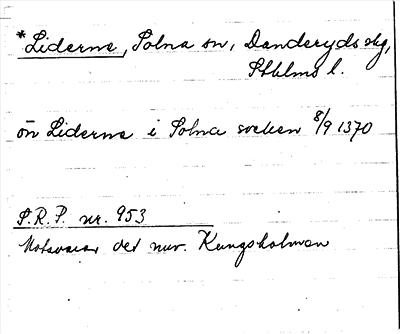 *Liderne, Solna sn, Danderyds skg,
Sthlms l.
ön Liderne i Solna socken 8/9 1370
S.R.P. nr. 953
Motsvarar det nuv. Kungsholmen